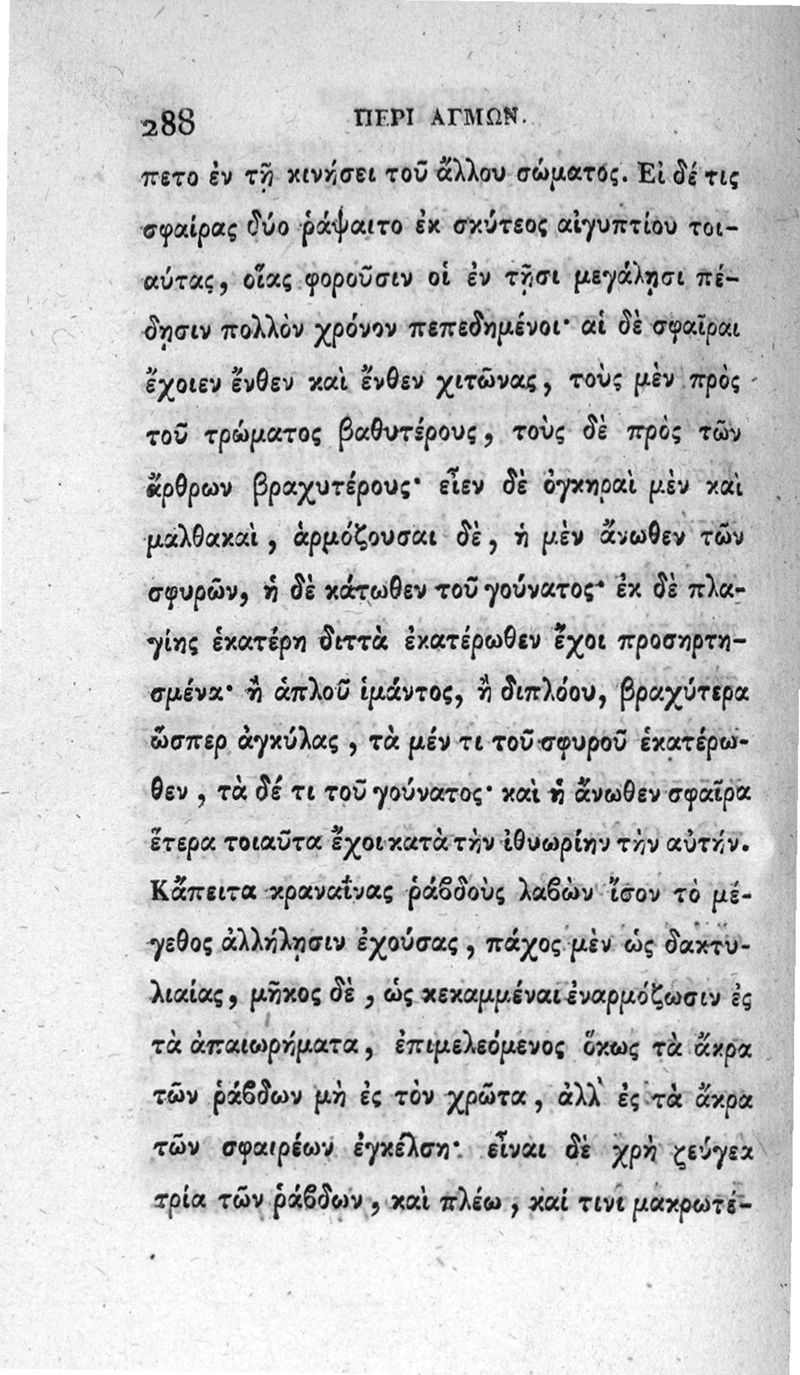 288 ΠΕΡΙ ΑΓΜΩΝ.
πετο ἐν τῇ κινήσει τοῦ ἄλλου σώματος. Εἰ δέ τις
σφαίρας δύο ῥάψαιτο ἐκ σκύτεος αἰγυπτίου τοι-
αύτας, οἵας φοροῦσιν οἱ ἐν τῇσι μεγάλῃσι πέ-
δῃσιν πολλὸν χρόνον πεπεδημένοι· αἱ δὲ σφαῖραι
ἔχοιεν ἔνθεν καὶ ἔνθεν χιτῶνας, τοὺς μὲν πρὸς
τοῦ τρώματος βαθυτέρους, τοὺς δὲ πρὸς τῶν
ἄρθρων βραχυτέρους· εἶεν δὲ ὀγκηραὶ μὲν καὶ
μαλθακαὶ, ἁρμόζουσαι δὲ, ἡ μὲν ἄνωθεν τῶν
σφυρῶν, ἡ δὲ κάτωθεν τοῦ γούνατος· ἐκ δὲ πλα-
γίης ἑκατέρη διττὰ ἑκατέρωθεν ἔχοι προσηρτη-
σμένα· ἢ ἁπλοῦ ἱμάντος, ἢ διπλόου, βραχύτερα
ὥσπερ ἀγκύλας, τὰ μέν τι τοῦ σφυροῦ ἑκατέρω-
θεν, τὰ δέ τι τοῦ γούνατος· καὶ ἡ ἄνωθεν σφαῖρα
ἕτερα τοιαῦτα ἔχοι κατὰ τὴν ἰθυωρίην τὴν αὐτήν.
Κἄπειτα κραναΐνας ῥάβδους λαβὼν ἴσον τὸ μέ-
γεθος ἀλλήλῃσιν ἐχούσας, πάχος μὲν ὡς δακτυ-
λιαίας, μῆκος δὲ, ὡς κεκαμμέναι ἐναρμόζωσιν ἐς
τὰ ἀπαιωρήματα, ἐπιμελεόμενος ὅκως τὰ ἄκρα
τῶν ῥάβδων μὴ ἐς τὸν χρῶτα, ἀλλ᾽ ἐς τὰ ἄκρα
τῶν σφαιρέων ἐγκέλσῃ· εἶναι δὲ χρὴ ζεύγεα
τρία τῶν ῥάβδων, καὶ πλέω, καί τινι μακρωτέ-